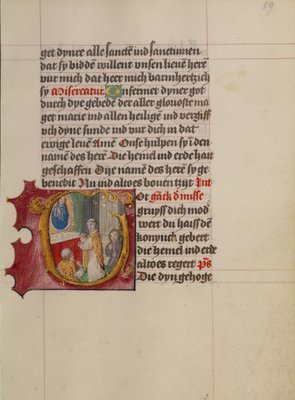 get dynre alle sanctē ind sanctinnen
dat sy biddē willent vnsen lieuē here
vur mich dat heer mich barmhertzich
sy Misereatur Onfermet dyner got
durch dye gebedē der aller glorioste ma
get marie ind allen heiligē ind vergiff
vch dyne sunde ind vur dich in dat
ewige leuē Amē Onse hulpen sy ī den
namē des herē Die hemel ind erde hait
geschaffen Dye namē des herē sy ge
benedit Nu ind altoes bouen tzijt Int
Ot gāck d misse
gruyss dich mod
wert du haiss dē
konynck gebert
die hemel ind erde
altoes regert Ps
Die dyn gehoge